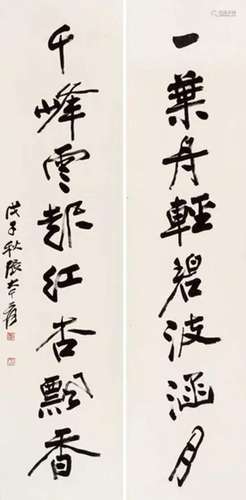 一葉舟輕碧波涵月
千峰雲起紅杏飄香
戊子秋張大千爰